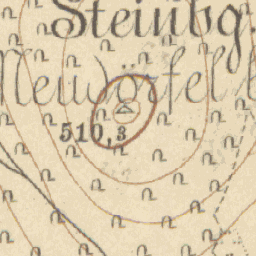 Steinbg.
Neudörfel
510,3